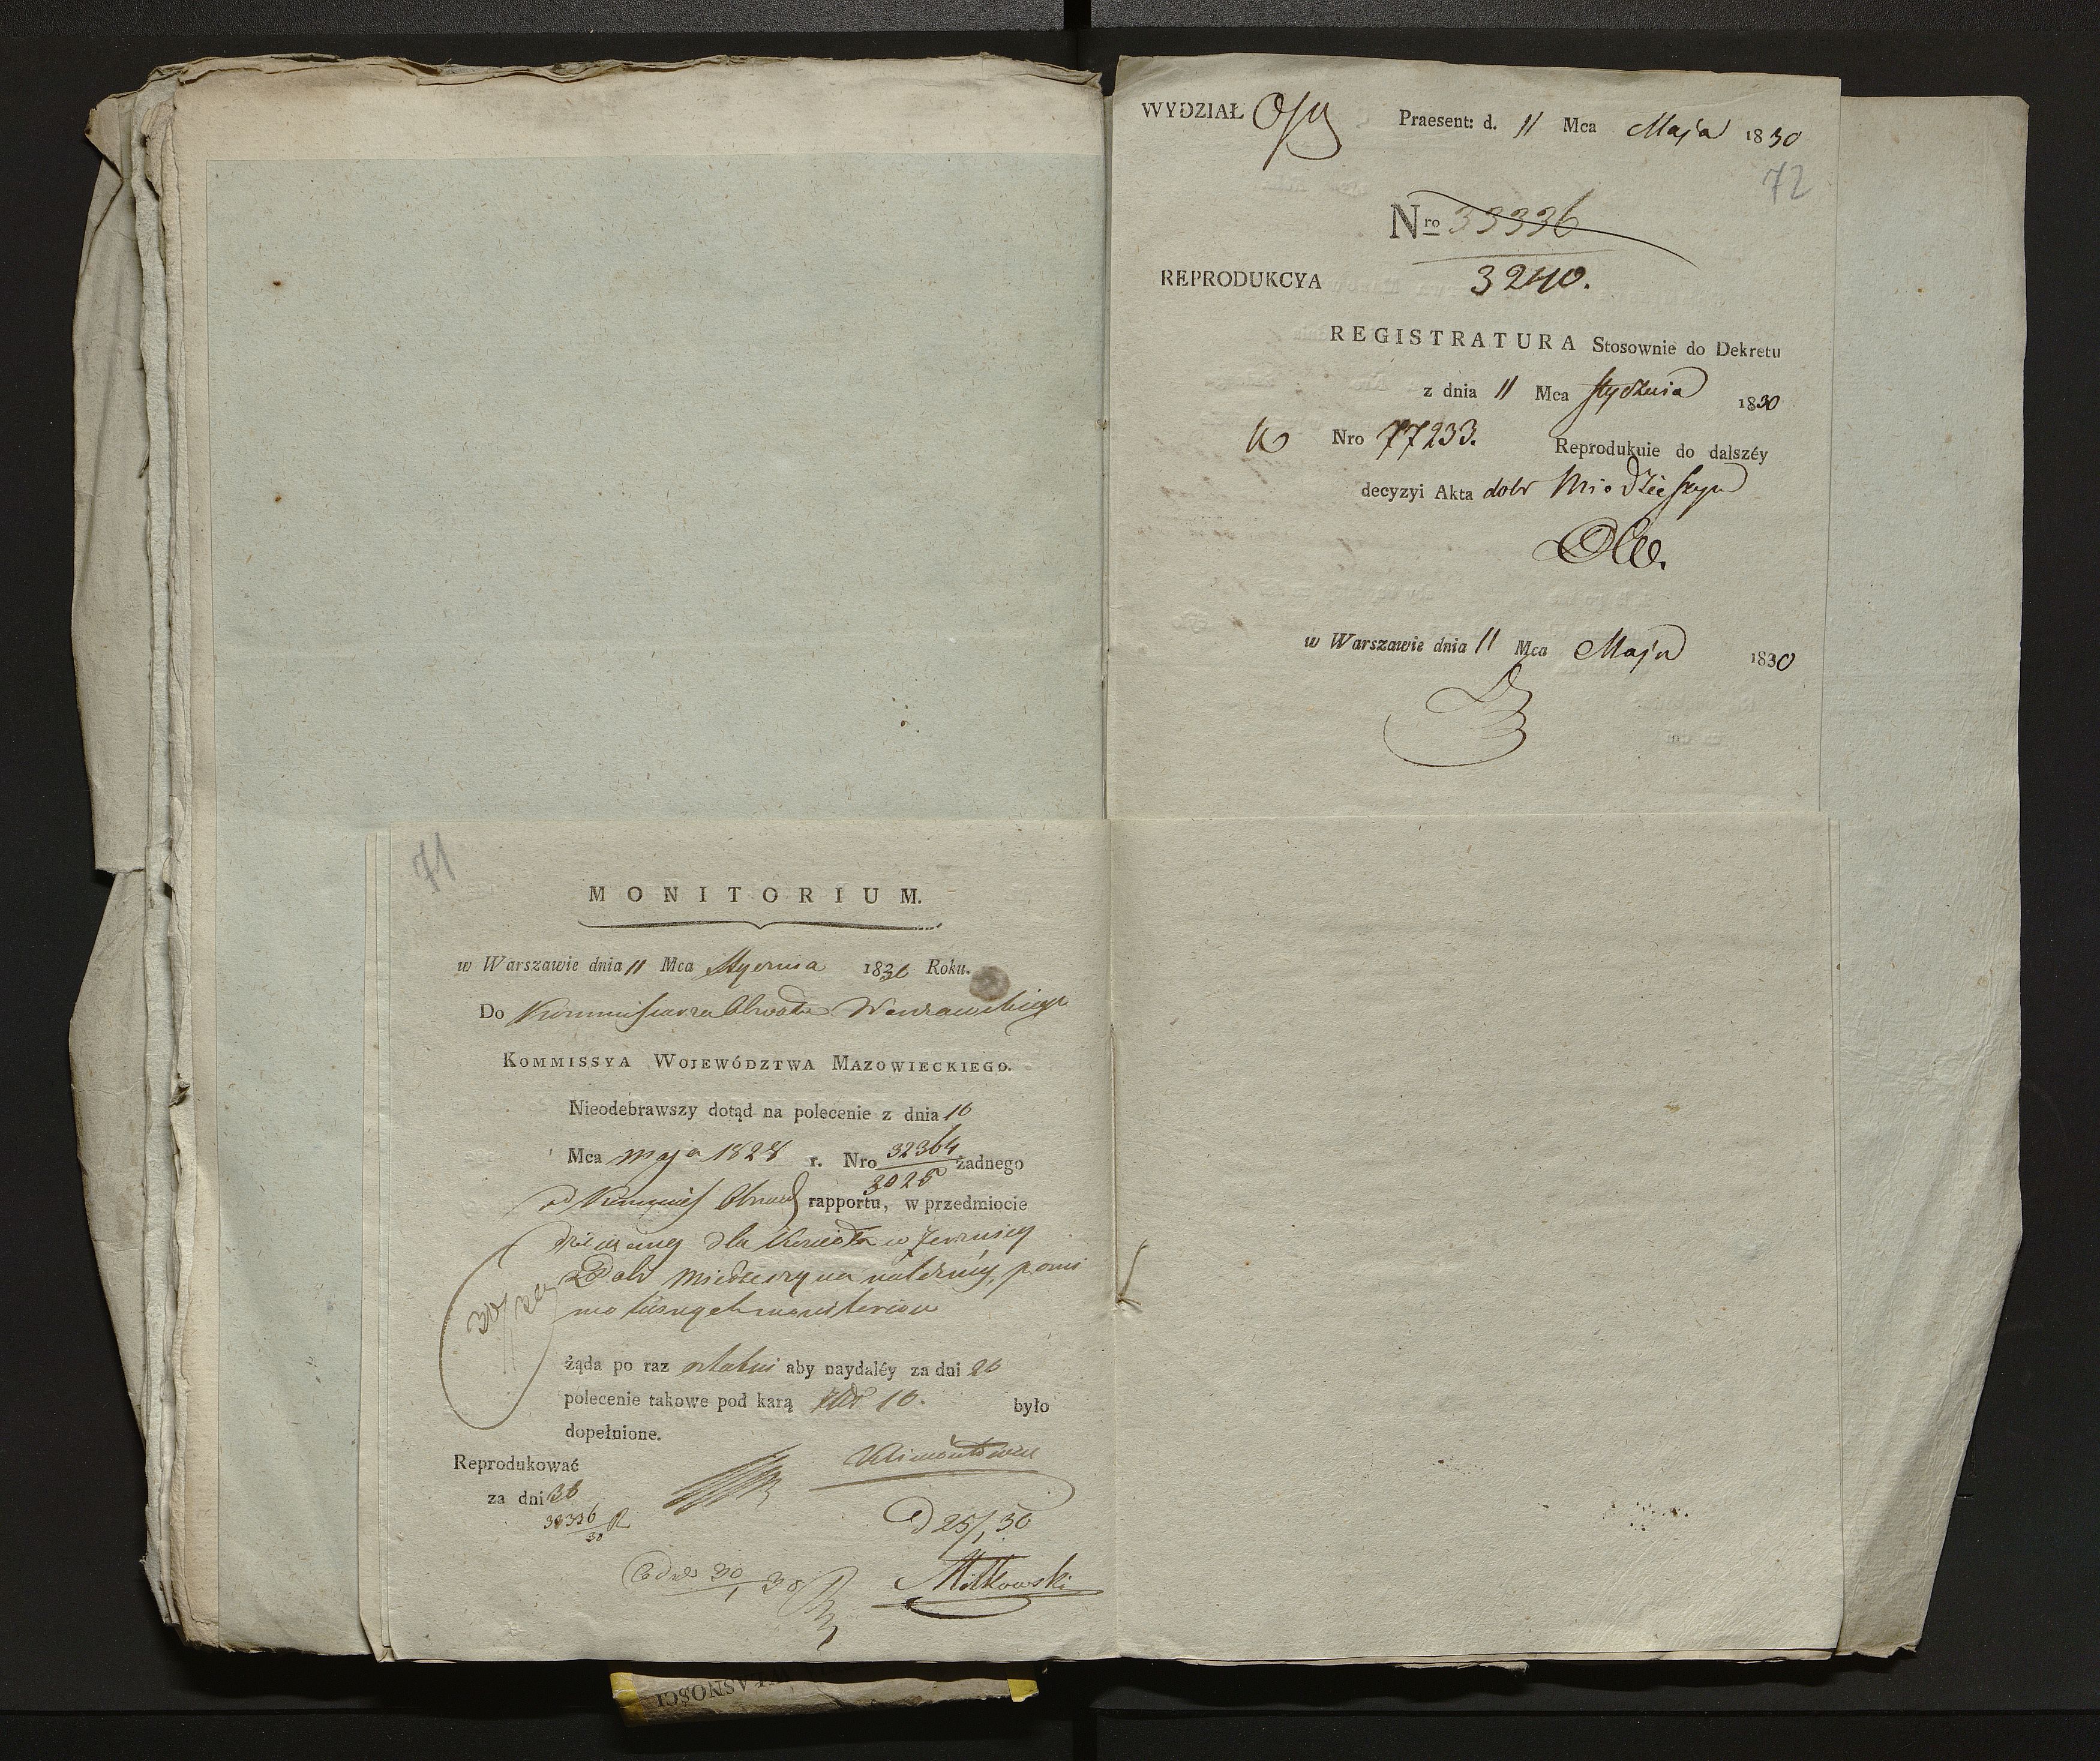 71
MONITORIUM.
w Warszawie dnia 11 Mca Stycznia 1830 Roku.
Do Kommissarza Obwodu Warszawskiego
KOMMISSYA WOJEWÓDZTWA MAZOWIECKIEGO.
Nieodebrawszy dotąd na polecenie z dnia 16
Mca maja 1828 r. Nro 32364/3025 żadnego
od Kommiss Obwod rapportu, w przedmiocie
dla Kościoła w
z Dobr Miedzeszyna należney, pomi
mo
żąda po raz ostatni aby naydaléy za dni 20
polecenie takowe pod karą 10. było
dopełnione.
Reprodukować
za dni 30
33336/30
Klimontowicz
d 25/1 30
30/1 30
Mitkowski
WYDZIAŁ Praesent: d. 11 Mca Maja 1830
72
Nro 33336
3240.
REPRODUKCYA
REGISTRATURA Stosownie do Dekretu
z dnia 11 Mca Stycznia 1830
Nro 77233. Reprodukuie do dalszéy
decyzyi Akta dobr Miedzieszyn
w Warszawie dnia 11 Mca Maja 1830
WŁASNOŚCI